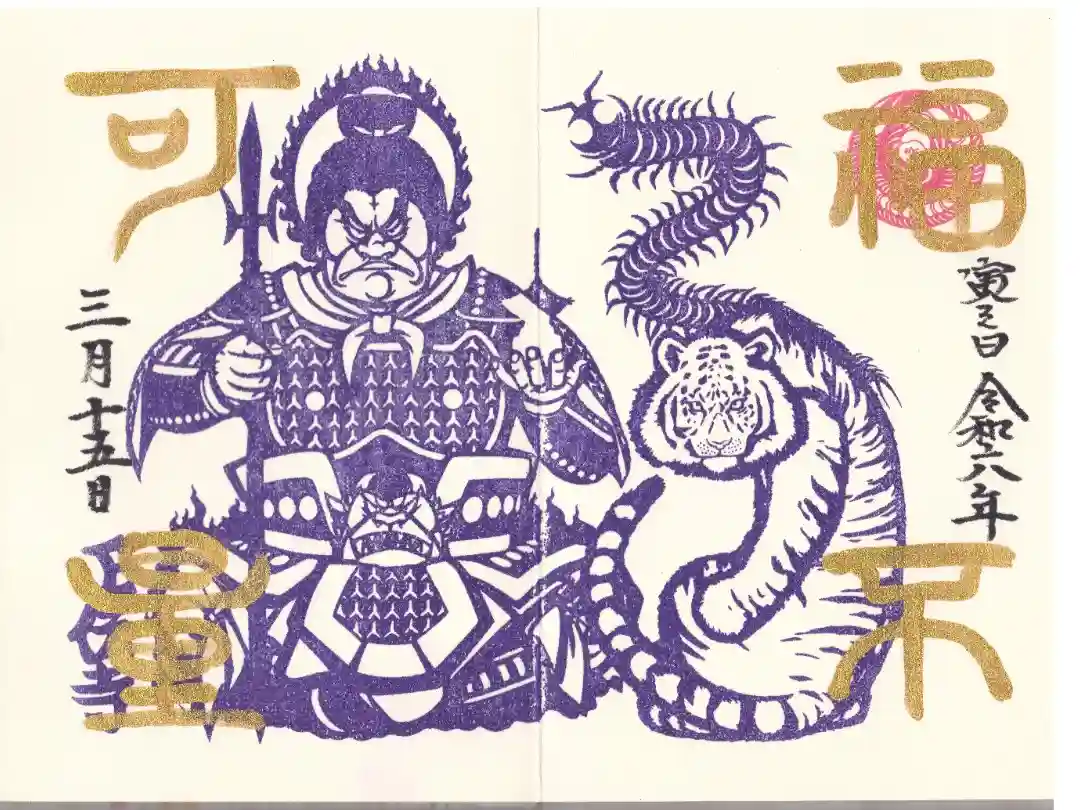 福不
寅之日 令和六年
可量
三月十五日